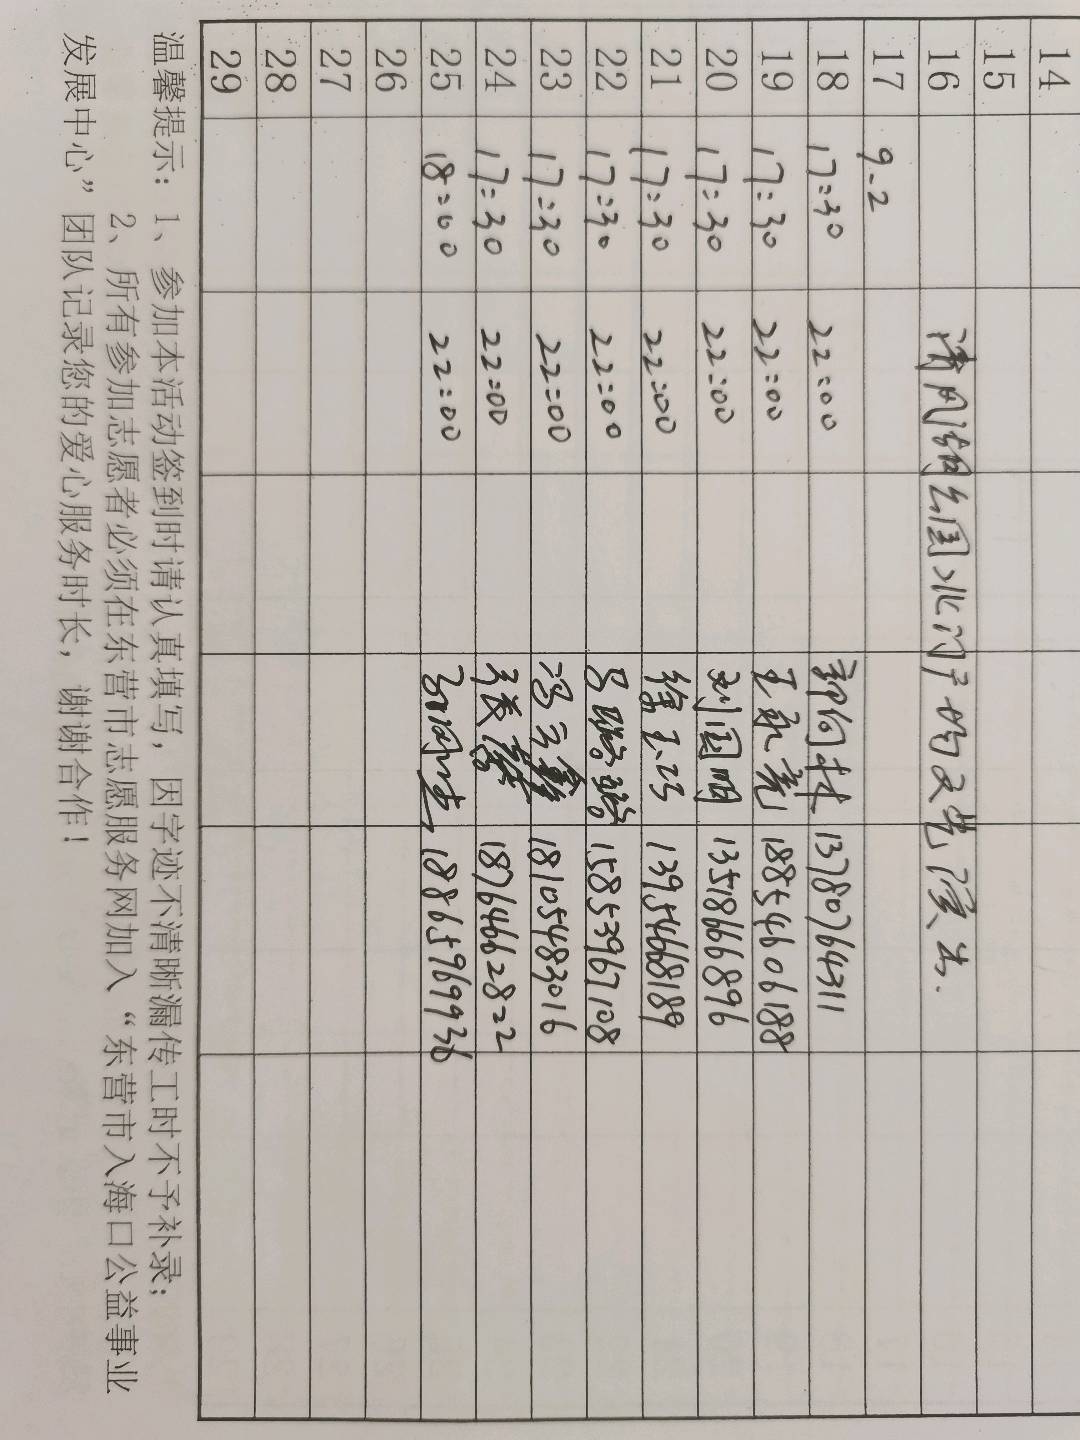 14
15
16 清风湖公园北门广场文艺演出.
17 9-2
18 17:30 22:00 郭向林 13780764311
19 17:30 22:00 王永亮 18854606188
20 17:30 22:00 刘国明 13518666896
21 17:30 22:00 徐玉巧 13954668189
22 17:30 22:00 吕璐璐 15853967108
23 17:30 22:00 冯云 18105483016
24 17:30 22:00 张 18764662822
25 18:00 22:00 18865969936
26
27
28
29
温馨提示：1、参加本活动签到时请认真填写，因字迹不清晰漏传工时不予补录；
2、所有参加志愿者必须在东营市志愿服务网加入“东营市入海口公益事业
发展中心”团队记录您的爱心服务时长，谢谢合作！